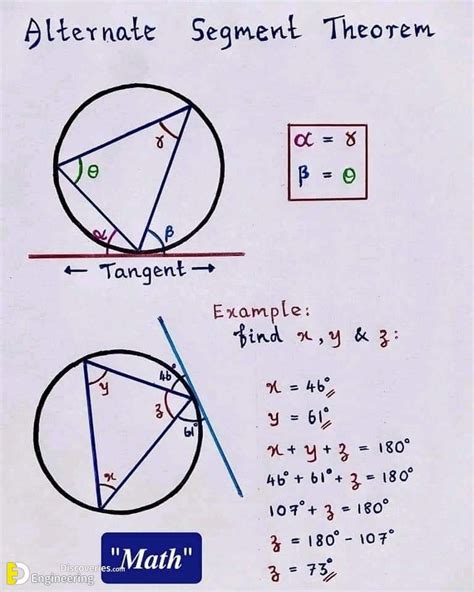 Alternate Segment Theorem
γ
θ
α
β
← Tangent →
α = γ
β = θ
Example:
find x, y & z:
46°
y
z
61°
x
x = 46°
y = 61°
x + y + z = 180°
46° + 61° + z = 180°
107° + z = 180°
z = 180° - 107°
z = 73°
"Math"
ED
Discoveries.com
Engineering